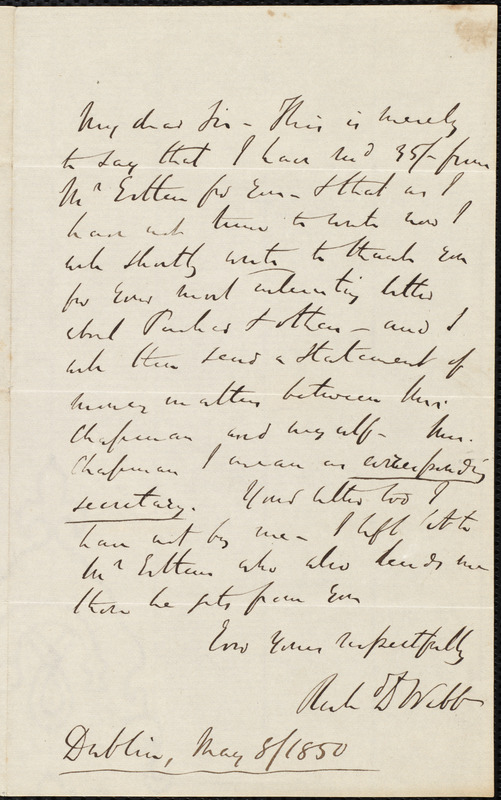 My dear Sir - This is merely
to say that I have recd 35/- from
Mr Estlin for you - & that as I
have not time to write now I
will shortly write to thank you
for your most interesting letter
about Parker & others - and I
will then send a statement of
money matters between Mrs.
Chapman and myself - Mrs.
Chapman I mean as corresponding
secretary. Your letter too I
have not by me - I left it to
Mr Estlin who also lends me
those he gets from you
Ever yours respectfully
Richd D Webb
Dublin, May 8/1850